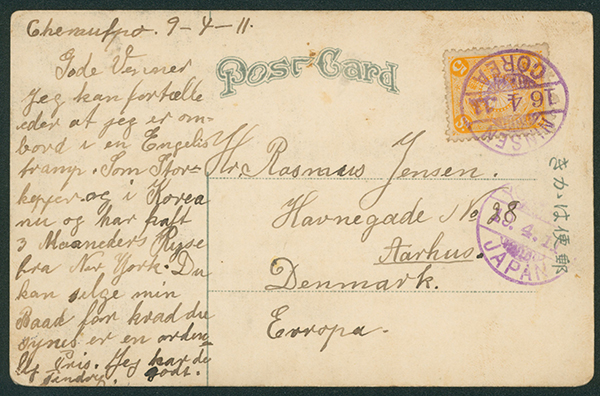 Chemulpo. 9-4-11.
Gode Venner
Jeg kan fortælle
eder at jeg er om-
bord i en Engelsk
tramp. Som Stor-
og i Korea
nu og har haft
3 Maaneders Rejse
fra New York. Du
kan selge min
Baad for hvad du
synes er en orden-
lig Pris. Jeg har det
godt.
Post Card
Hr. Rasmus Jensen.
Havnegade No 28
Aarhus.
Denmark.
Evropa.
5
COREA
16.4.11
JINSEN
4.11
JAPAN
きかは便郵